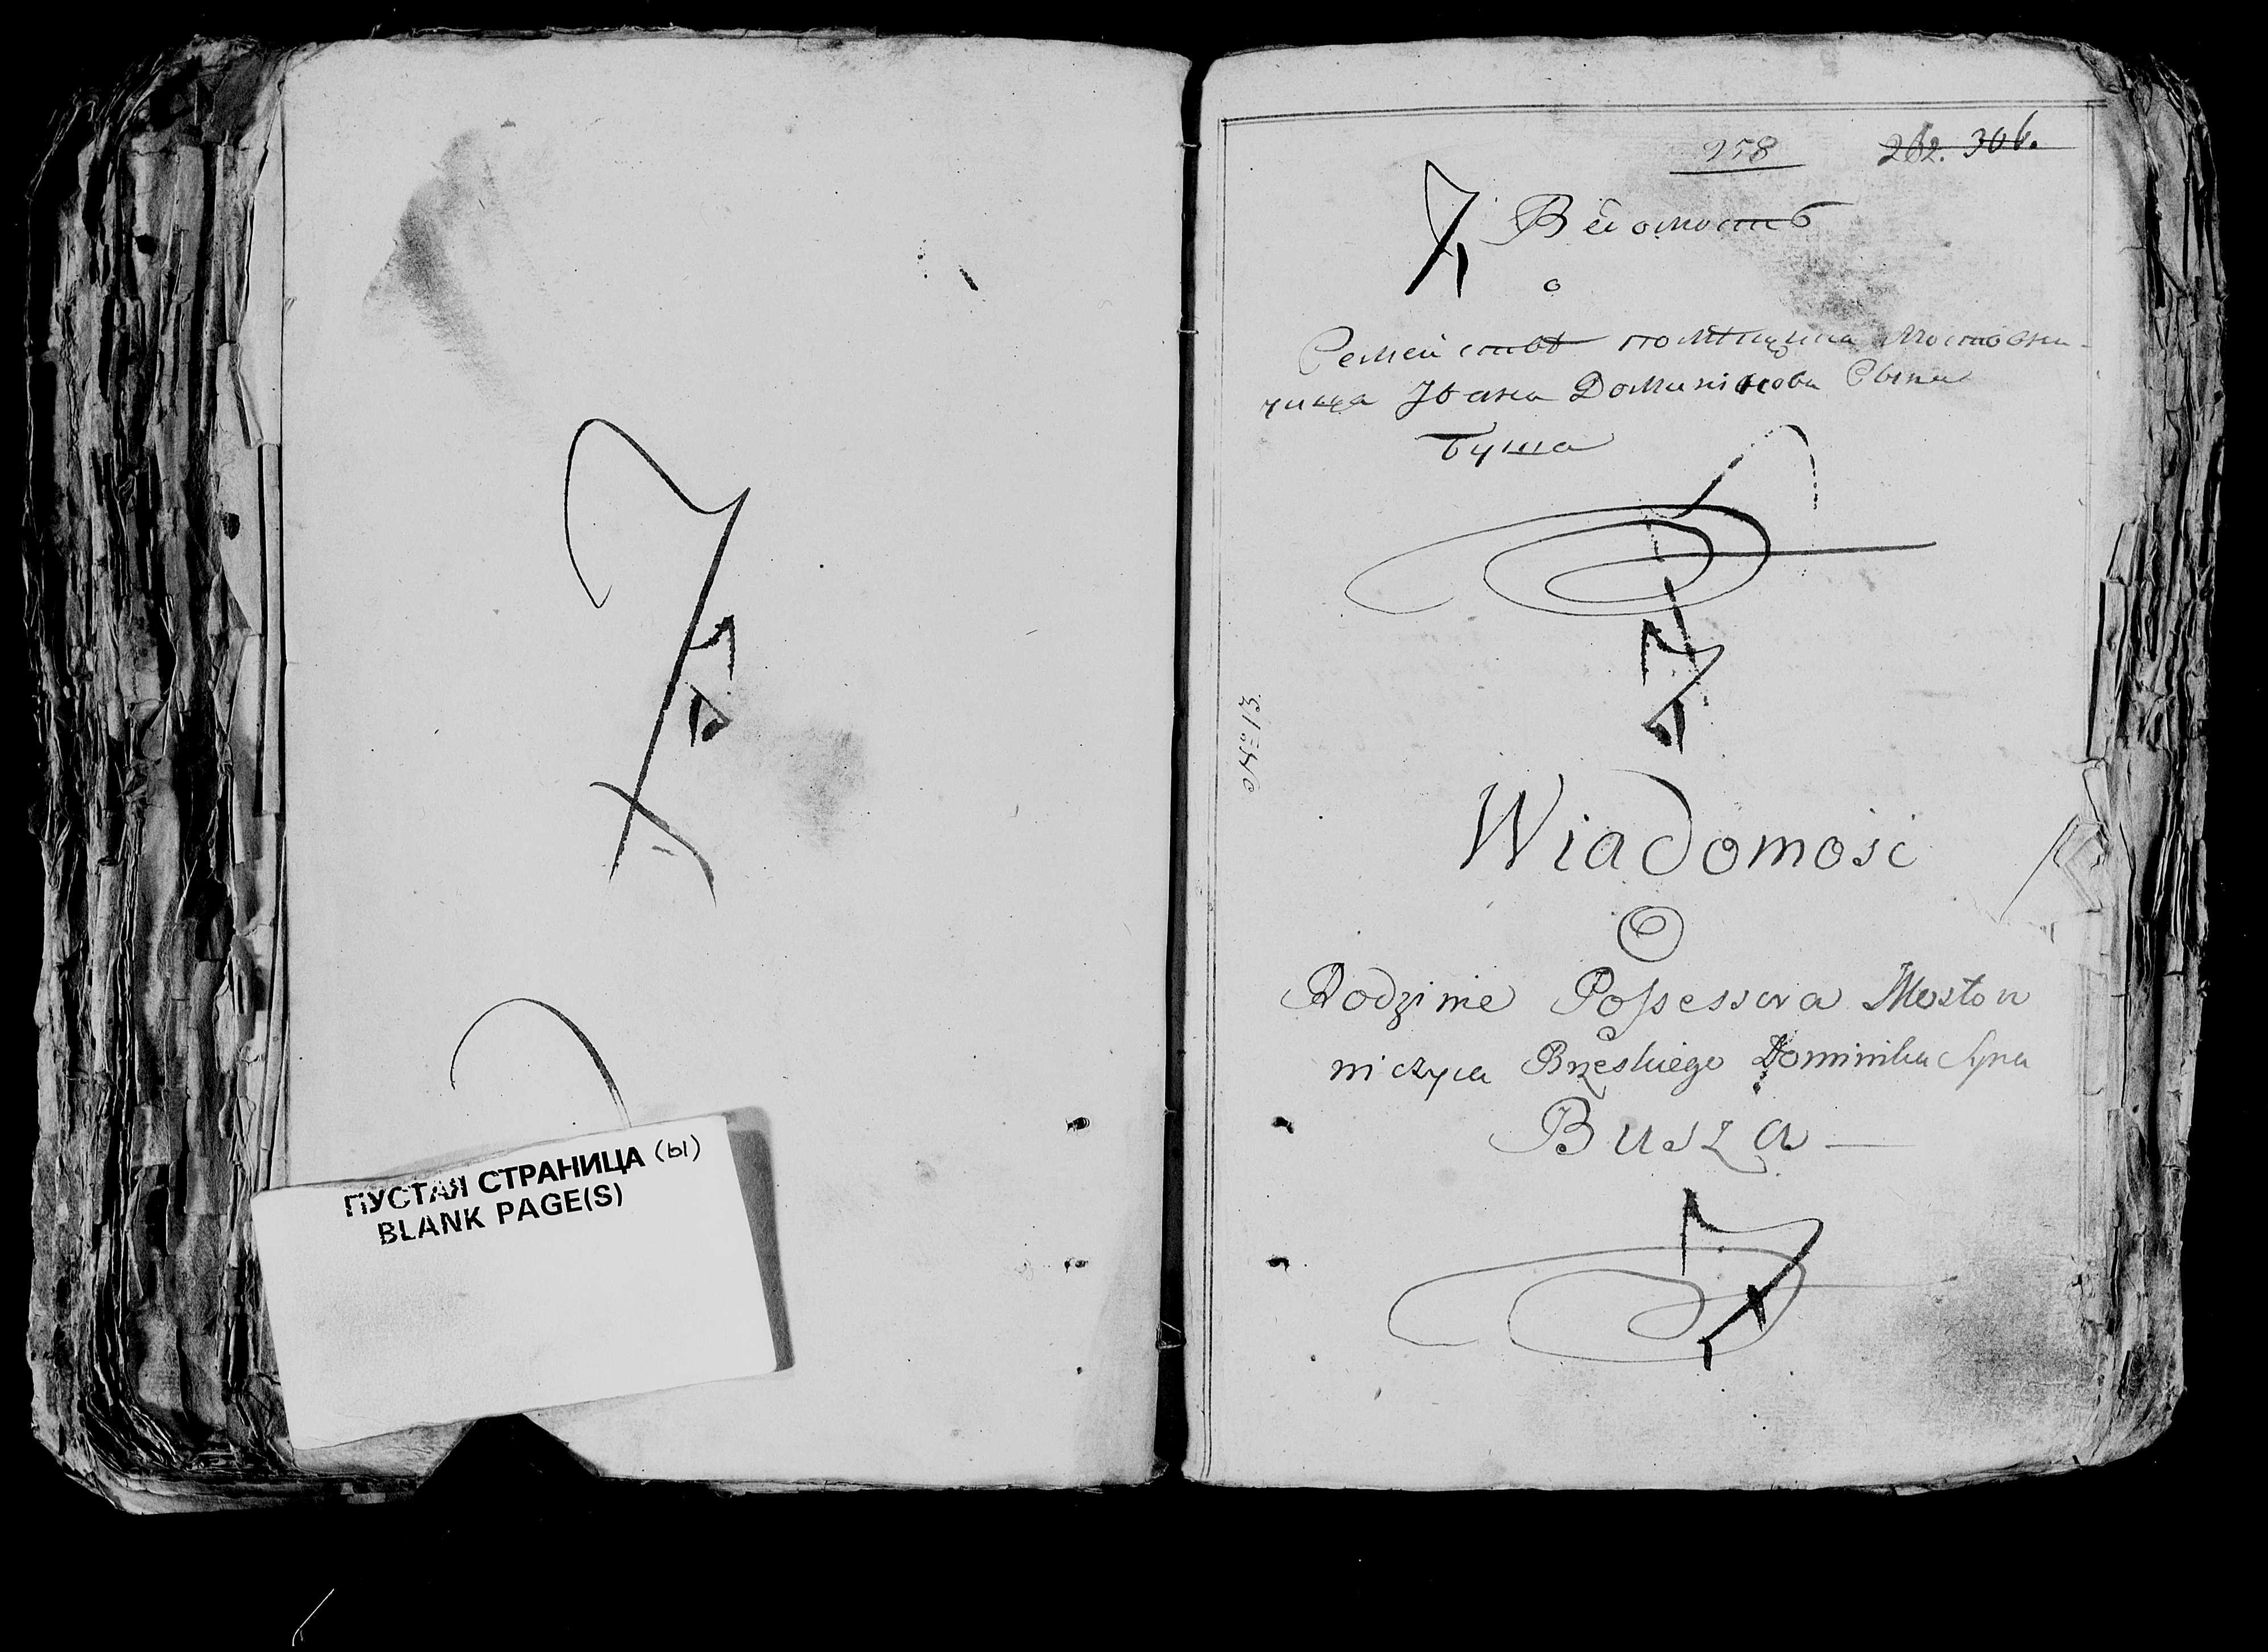 ПУСТАЯ СТРАНИЦА (ы)
BLANK PAGE(S)
258 262. 306.
Вѣдомость
о
Семействѣ помѣщика Мостовни-
чица Ивана Доминикова Сына
Буша
№ 13.
Wiadomosc
O
Rodzinie Possessora Mostow
niczyca Brzeskiego Dominika Syna
Busza